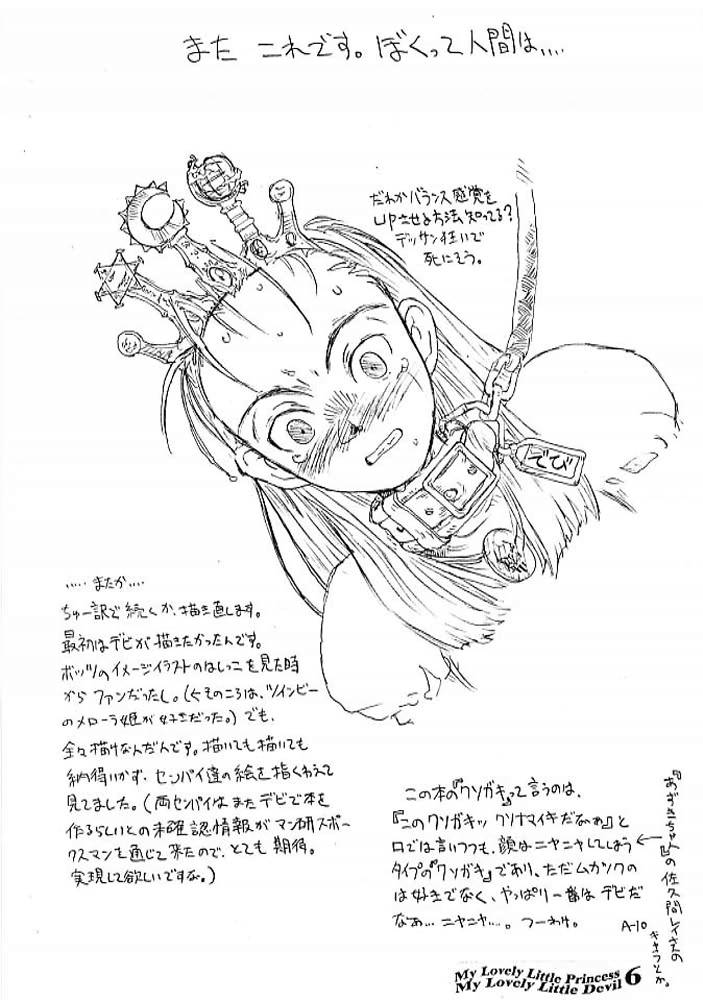 また これです。ぼくって人間は‥‥
だれかバランス感覚を
UPさせる方法知ってる?
デッサン狂いで
死にそう。
でび
‥‥‥またか‥‥
ちゅー訳で続くか、描き直します。
最初はデビが描きたかったんです。
ボッツのイメージイラストのはしっこを見た時
からファンだったし。(そのころは、ツインビー
のメローラ姫が好きだった。)でも、
全々描けなんだんです。描いても描いても
納得いかず、センパイ達の絵を指くわえて
見てました。(両センパイはまたデビで本を
作るらしいとの未確認情報がマン研スポー
クスマンを通じて来たので、とても期待。
実現して欲しいですな。)
この本の『クソガキ』って言うのは、
『このクソガキッ クソナマイキだなぁ』と
口では言いつつも、顔はニヤニヤしてしまう
タイプの『クソガキ』であり、ただムカツクの
は好きでなく、やっぱり一番はデビだ
なぁ‥‥ニヤニヤ‥‥。つーわけ。
『あずきちゃん』の佐久間レイさんの
キャラとか。
A-10
My Lovely Little Princess
My Lovely Little Devil 6